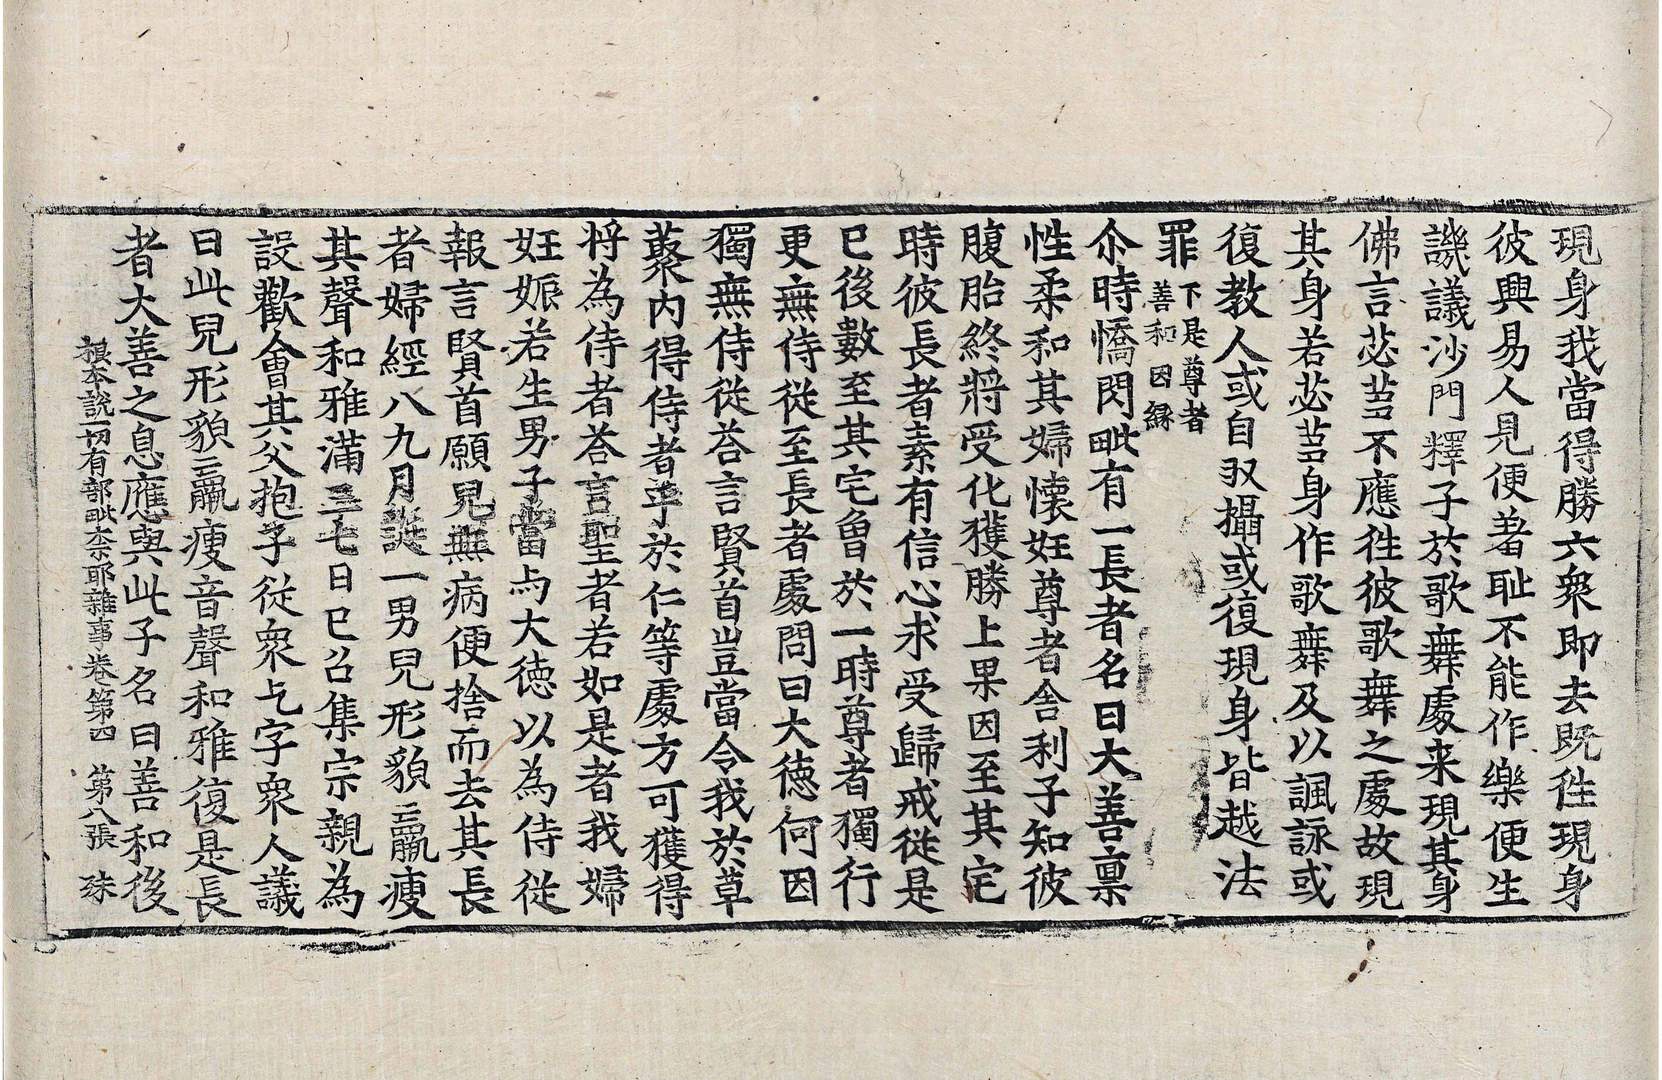 現身我當得勝六衆即去既徃現身
彼興易人見便羞耻不能作樂便生
譏議沙門釋子於歌舞處来現其身
佛言苾芻不應徃彼歌舞之處故現
其身若苾芻身作歌舞及以諷詠或
復教人或自収攝或復現身皆越法
罪下是尊者善和因縁
尒時憍閃毗有一長者名曰大善禀
性柔和其婦懷妊尊者舍利子知彼
腹胎終將受化獲勝上果因至其宅
時彼長者素有信心求受歸戒從是
已後數至其宅曾於一時尊者獨行
更無侍從至長者處問曰大徳何因
獨無侍從荅言賢首豈當令我於草
藂內得侍者乎於仁等處方可獲得
将為侍者荅言聖者若如是者我婦
妊娠若生男子當与大徳以為侍従
報言賢首願兒無病便捨而去其長
者婦經八九月誕一男兒形貌羸瘦
其聲和雅滿三七日已召集宗親為
設歡會其父抱子従衆乞字衆人議
曰此兒形貌羸瘦音聲和雅復是長
者大善之息應與此子名曰善和後
根本說一切有部毗柰耶雜事卷第四 第八張 殊